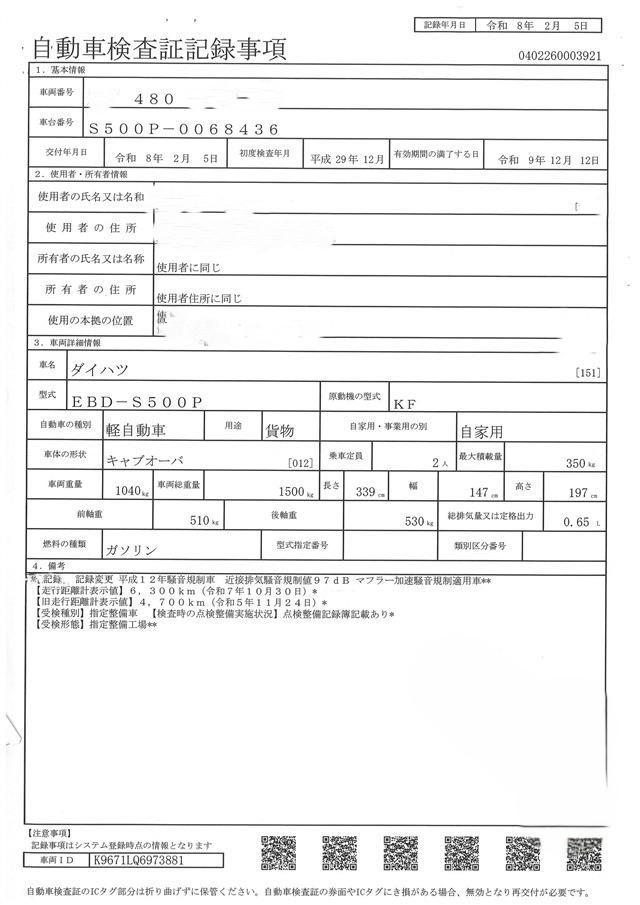 記録年月日 令和 8年 2月 5日
自動車検査証記録事項
0402260003921
1. 基本情報
車両番号 480
車台番号 S500P-0068436
交付年月日 令和 8年 2月 5日 初度検査年月 平成29年12月 有効期間の満了する日 令和 9年12月 12日
2. 使用者・所有者情報
使用者の氏名又は名称
使用者の住所
所有者の氏名又は名称 使用者に同じ
所有者の住所 使用者住所に同じ
使用の本拠の位置
3. 車両詳細情報
車名 ダイハツ [151]
型式 EBD-S500P 原動機の型式 KF
自動車の種別 軽自動車 用途 貨物 自家用・事業用の別 自家用
車体の形状 キャブオーバ [012] 乗車定員 2人 最大積載量 350kg
車両重量 1040kg 車両総重量 1500kg 長さ 339cm 幅 147cm 高さ 197cm
前軸重 510kg 後軸重 530kg 総排気量又は定格出力 0.65 L
燃料の種類 ガソリン 型式指定番号 類別区分番号
4. 備考
記録 記録変更 平成12年騒音規制車 近接排気騒音規制値97dB マフラー加速騒音規制適用車**
【走行距離計表示値】6,300km(令和7年10月30日)*
【旧走行距離計表示値】4,700km(令和5年11月24日)*
【受検種別】指定整備車 【検査時の点検整備実施状況】点検整備記録簿記載あり*
【受検形態】指定整備工場**
【注意事項】
記録事項はシステム登録時点の情報となります
車両ID K9671LQ6973881
自動車検査証のICタグ部分は折り曲げずに保管ください。自動車検査証の券面やICタグにき損がある場合、無効となり再交付が必要です。